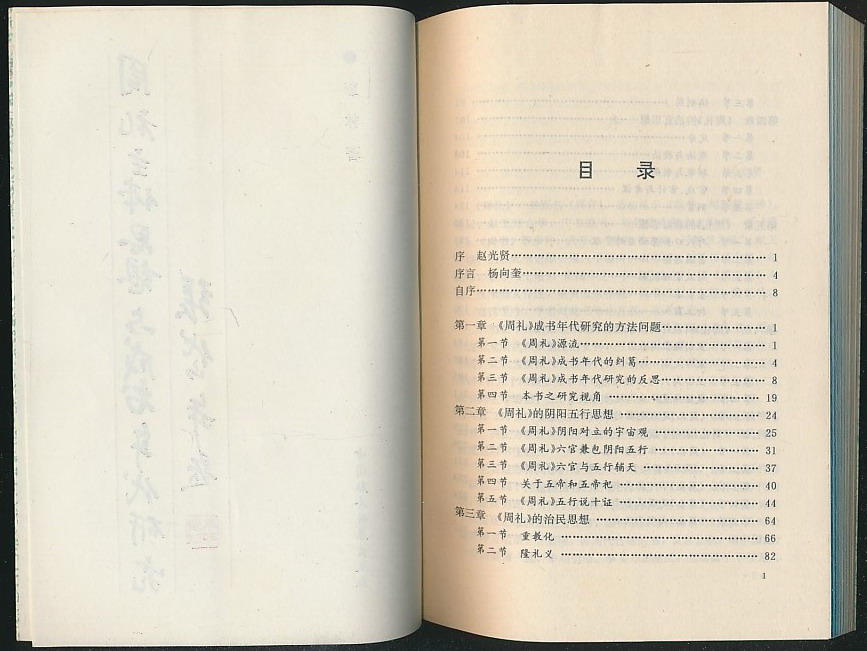 目 录
序 赵光贤…………1
序言 杨向奎…………4
自序…………8
第一章 《周礼》成书年代研究的方法问题…………1
第一节 《周礼》源流…………1
第二节 《周礼》成书年代的纠葛…………4
第三节 《周礼》成书年代研究的反思…………8
第四节 本书之研究视角…………19
第二章 《周礼》的阴阳五行思想…………24
第一节 《周礼》阴阳对立的宇宙观…………25
第二节 《周礼》六官兼包阴阳五行…………31
第三节 《周礼》六官与五行辅天…………37
第四节 关于五帝和五帝祀…………40
第五节 《周礼》五行说十证…………44
第三章 《周礼》的治民思想…………64
第一节 重教化…………66
第二节 隆礼义…………82
1